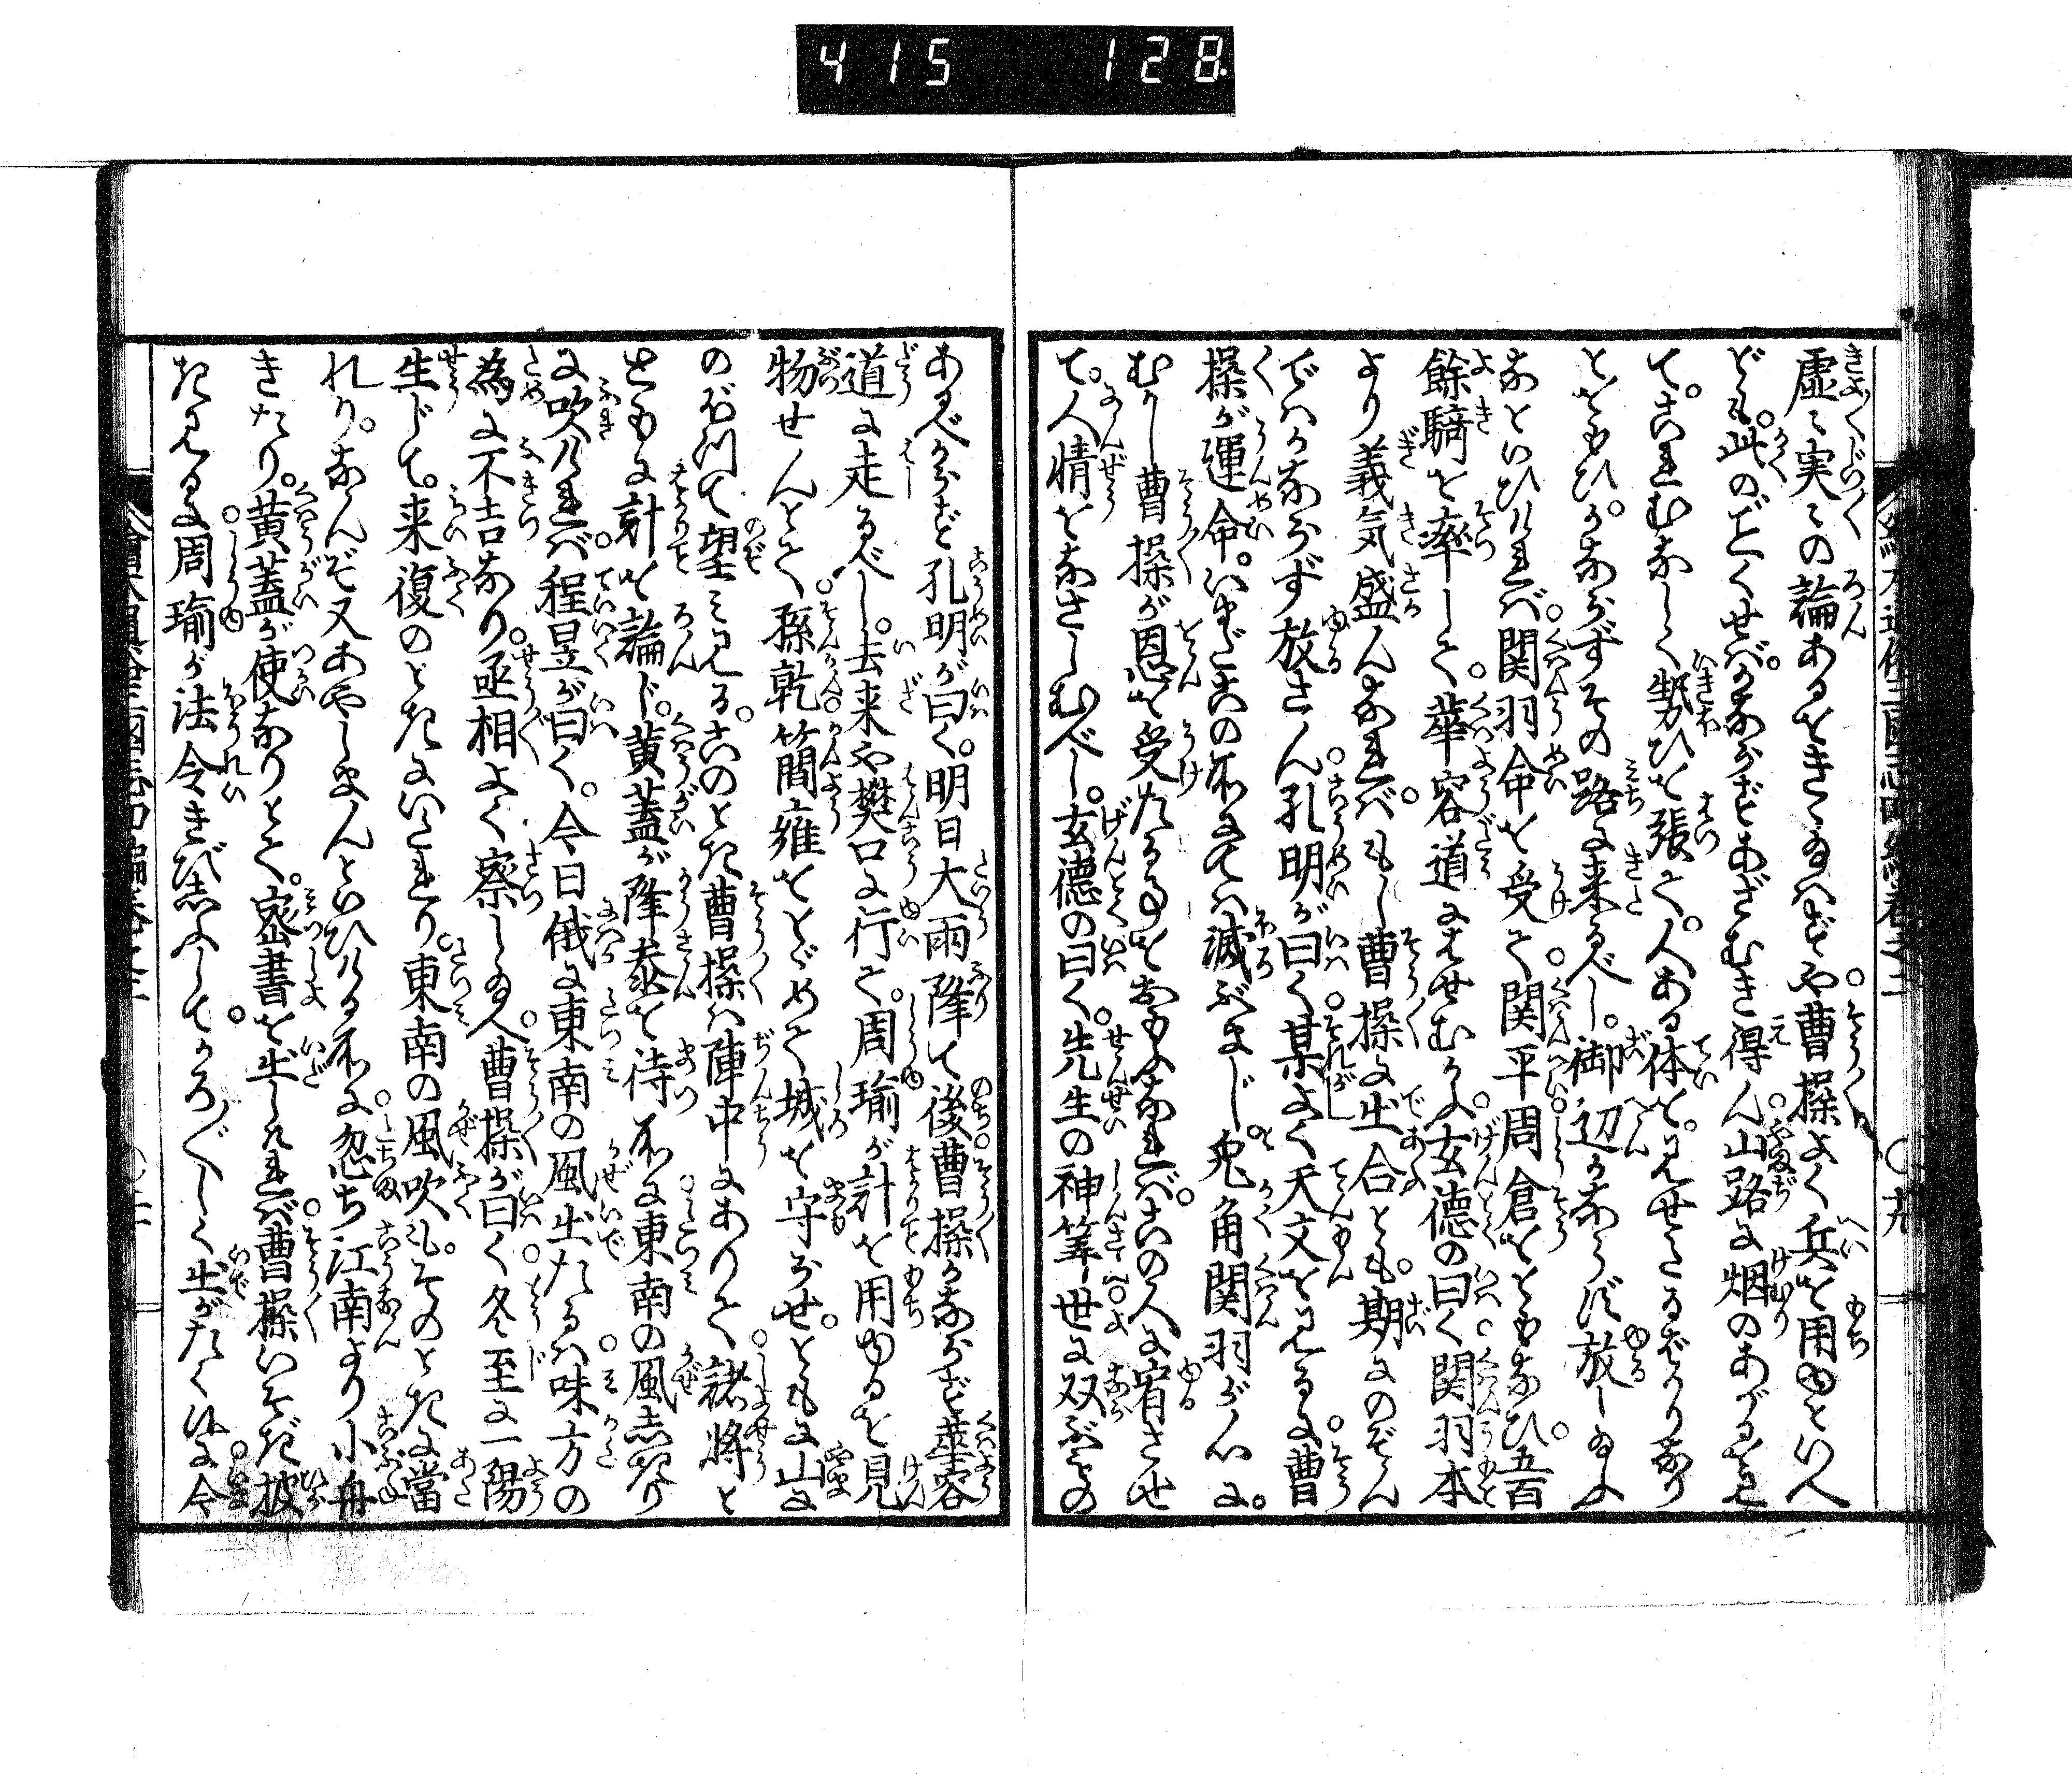 415 128
虚々実々の論あるをきゝ給へずや曹操よく兵を用ゆといへ
ども。此のごくせば。かならずあざむき得ん山路に烟のあがるを見
て。これむなしく勢ひを張て。人ある体を。見せたるばかりなり
とおもひ。かならずその路に来るべし。御辺かならず放し給ふ
なといひければ関羽命を受て関平周倉をともなひ。五百
餘騎を率して。華容道にはせむかふ玄徳の曰く関羽本
より義気盛んなれば。もし曹操に出合とも。期にのぞん
ではかならず放さん孔明が曰く某よく天文を見るに曹
操が運命。いまだこの所にては滅ぶまじ兎角関羽が心に。
むかし曹操が恩を受たる事をおもふなれば。この人に宥させ
て。人情をなさしむべし。玄徳の曰く。先生の神筭世に双ぶもの
あるべからず孔明が曰く。明日大雨降て後曹操かならず華容
道に走るべし。去来や樊口に行て。周瑜が計を用ゆるを見
物せんとて孫乾簡雍をとゞめて城を守らせ。ともに山に
のぼつて望み見る。このとき曹操は陣中にありて諸将と
ともに計を論じ。黄蓋が降参を待所に東南の風志きり
に吹ければ程昱が曰く。今日俄に東南の風出たるは味方の
為に不吉なり。丞相よく察し給へ曹操が曰く冬至に一陽
生じて。来復のときにいたれり。東南の風吹も。そのときに當
れり。なんぞ又あやしまんといひける所に忽ち江南より小舟
きたり。黄蓋が使なりとて。密書を出しければ曹操いそぎ披
き見るに周瑜が法令きびしふして。かろ〴〵しく出がたく候に今